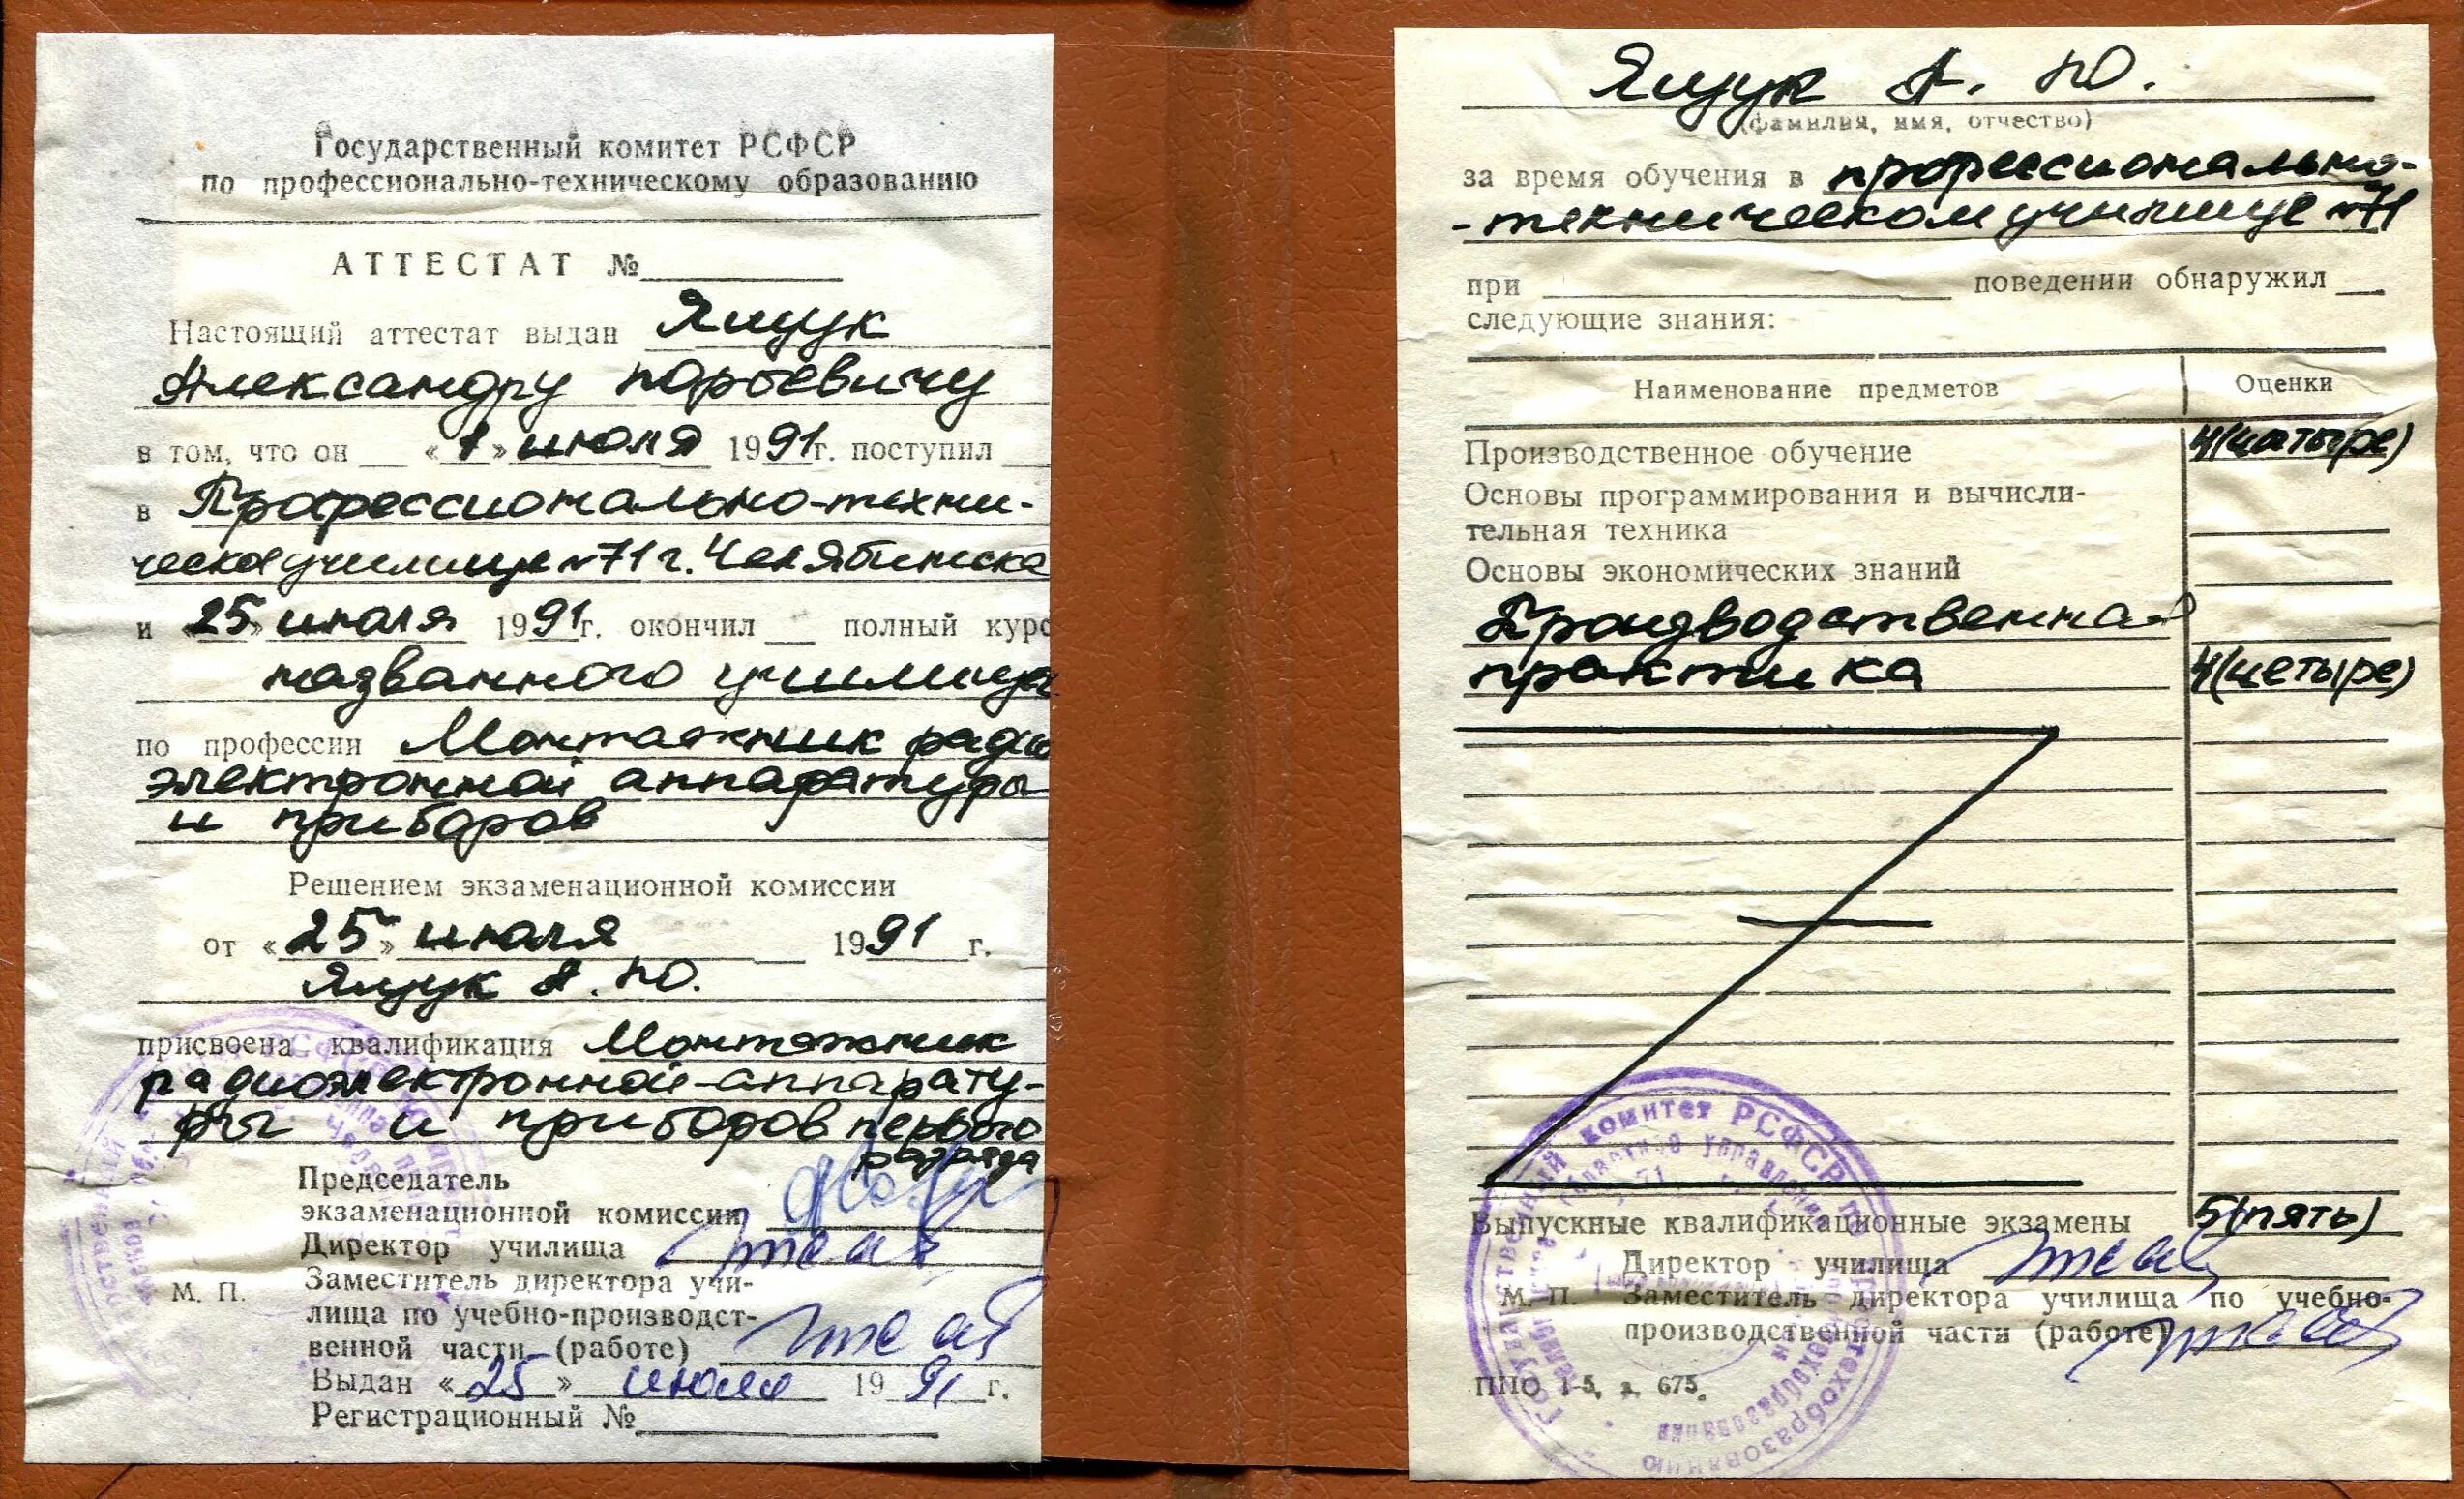 Государственный комитет РСФСР
по профессионально-техническому образованию
АТТЕСТАТ №
Настоящий аттестат выдан Ящук
Александру Юрьевичу
в том, что он « 1 » июля 1991г. поступил
в Профессионально-техни-
ческое училище №71 г. Челябинска
и «25» июля 1991г. окончил полный курс
названного училища
по профессии Монтажник радио
электронной аппаратуры
и приборов
Решением экзаменационной комиссии
от «25» июля 1991 г.
Ящук А. Ю.
присвоена квалификация Монтажник
радиоэлектронной аппарату-
ры и приборов первого
разряда
Председатель
экзаменационной комиссии
Директор училища
М. П.
Заместитель директора учи-
лища по учебно-производст-
венной части (работе)
Выдан «25» июля 1991 г.
Регистрационный №
Ящук А. Ю.
(фамилия, имя, отчество)
за время обучения в профессионально-
-техническом училище №71
при поведении обнаружил
следующие знания:
Наименование предметов Оценки
Производственное обучение 4(четыре)
Основы программирования и вычисли-
тельная техника
Основы экономических знаний
Производственная
практика 4(четыре)
Выпускные квалификационные экзамены 5(пять)
Директор училища
М. П. Заместитель директора училища по учебно-
производственной части (работе)
ППО 1-5, з. 675.
Государственный комитет РСФСР по профтехобразованию